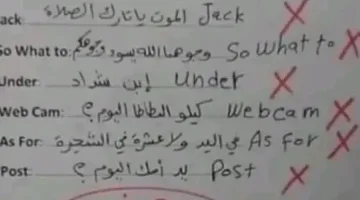 ack: الموت ياتارك الصلاة Jack X
So What to: وجوهنا الله يسود وجوهكم So What to X
Under: إبن شداد Under X
Web Cam: كيلو البطاطا اليوم ؟ Webcam X
As For: في اليد ولا عشرة في الشجرة As For X
Post: يد أمك اليوم ؟ Post X